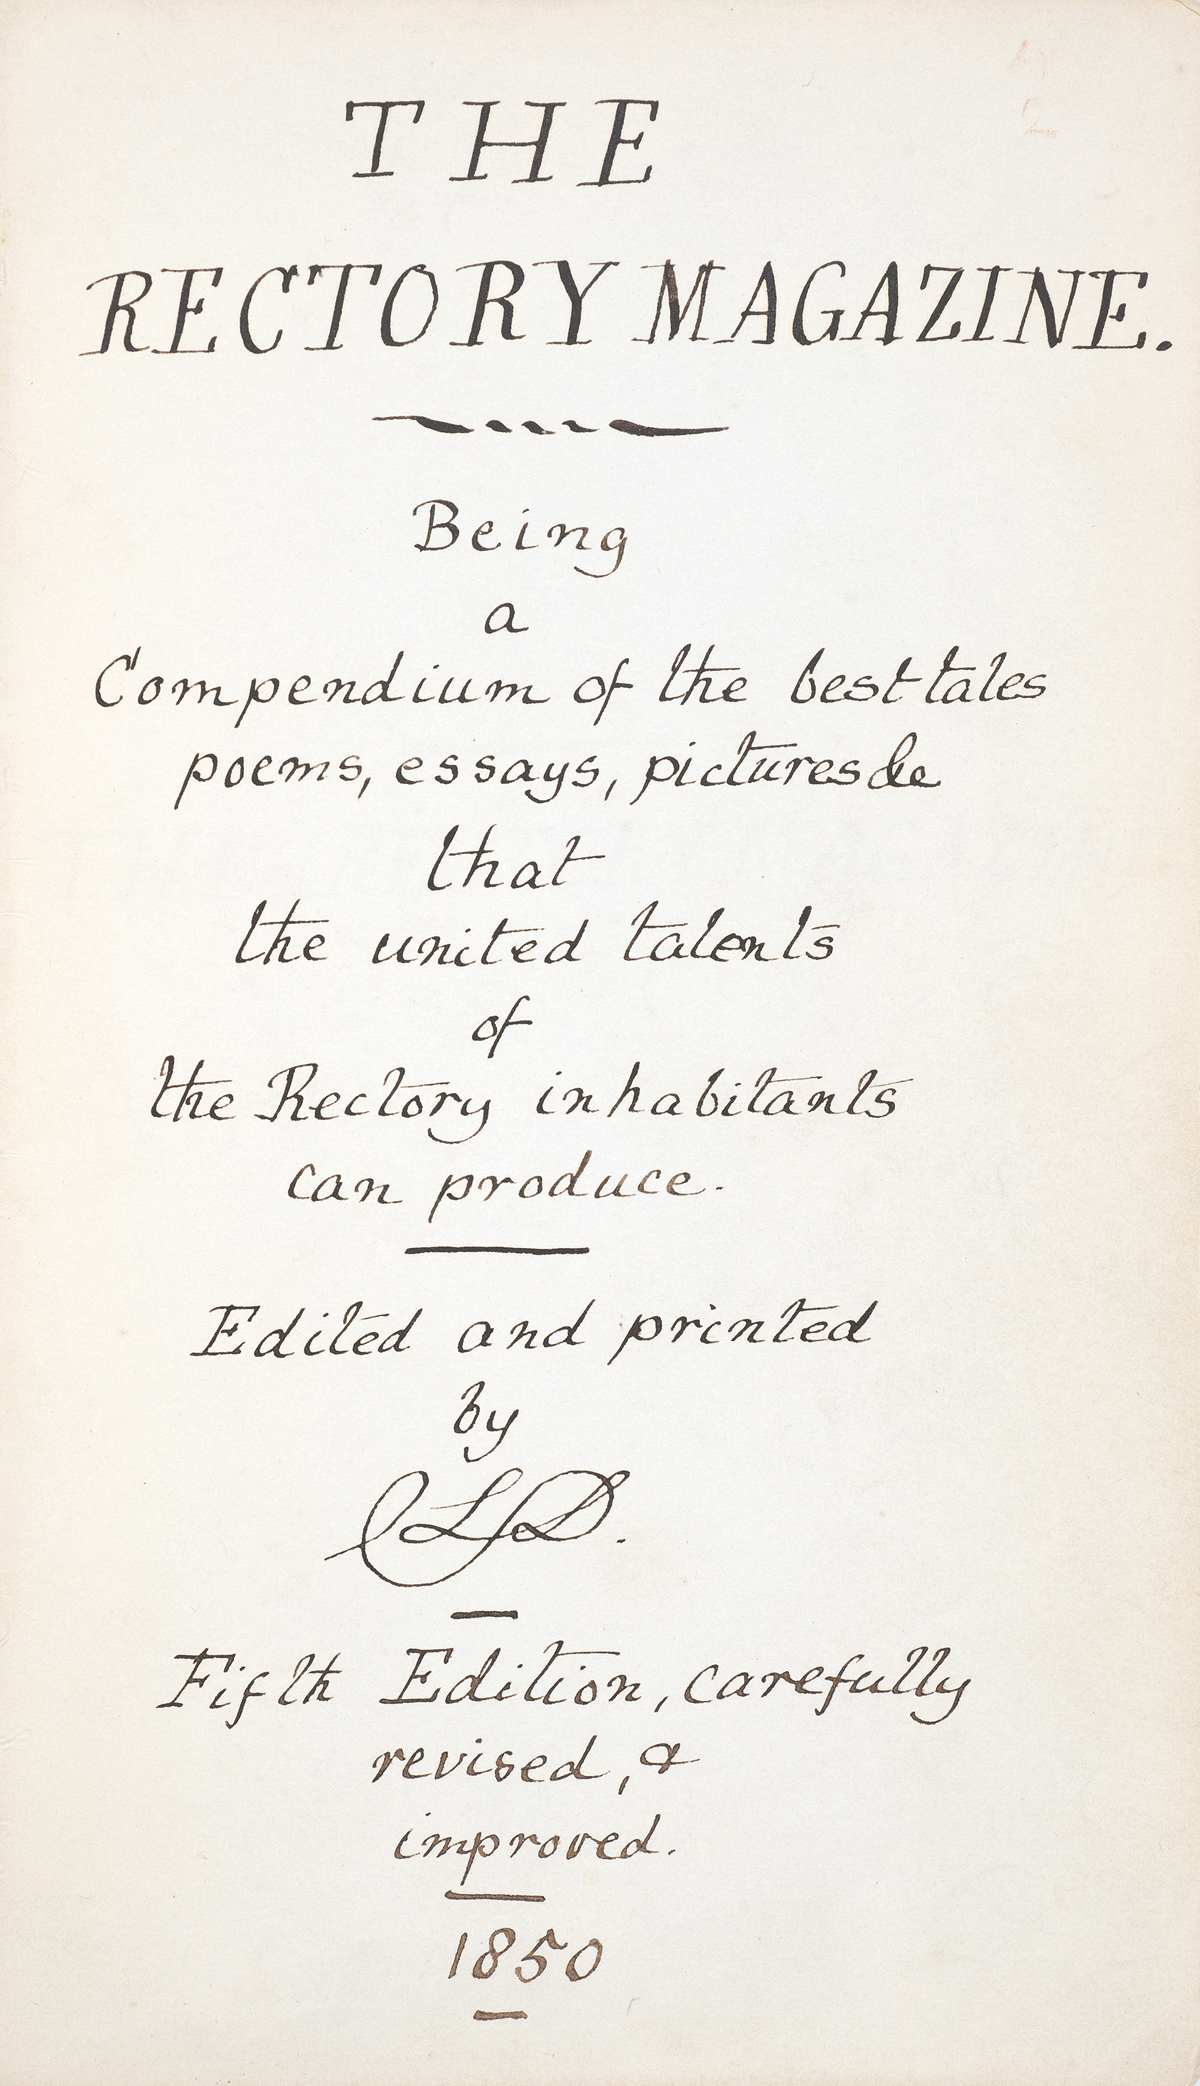 THE
RECTORY MAGAZINE.
Being
a
Compendium of the best tales
poems, essays, pictures &c
that
the united talents
of
the Rectory inhabitants
can produce.
Edited and printed
by
CLD.
Fifth Edition, carefully
revised, &
improved.
1850